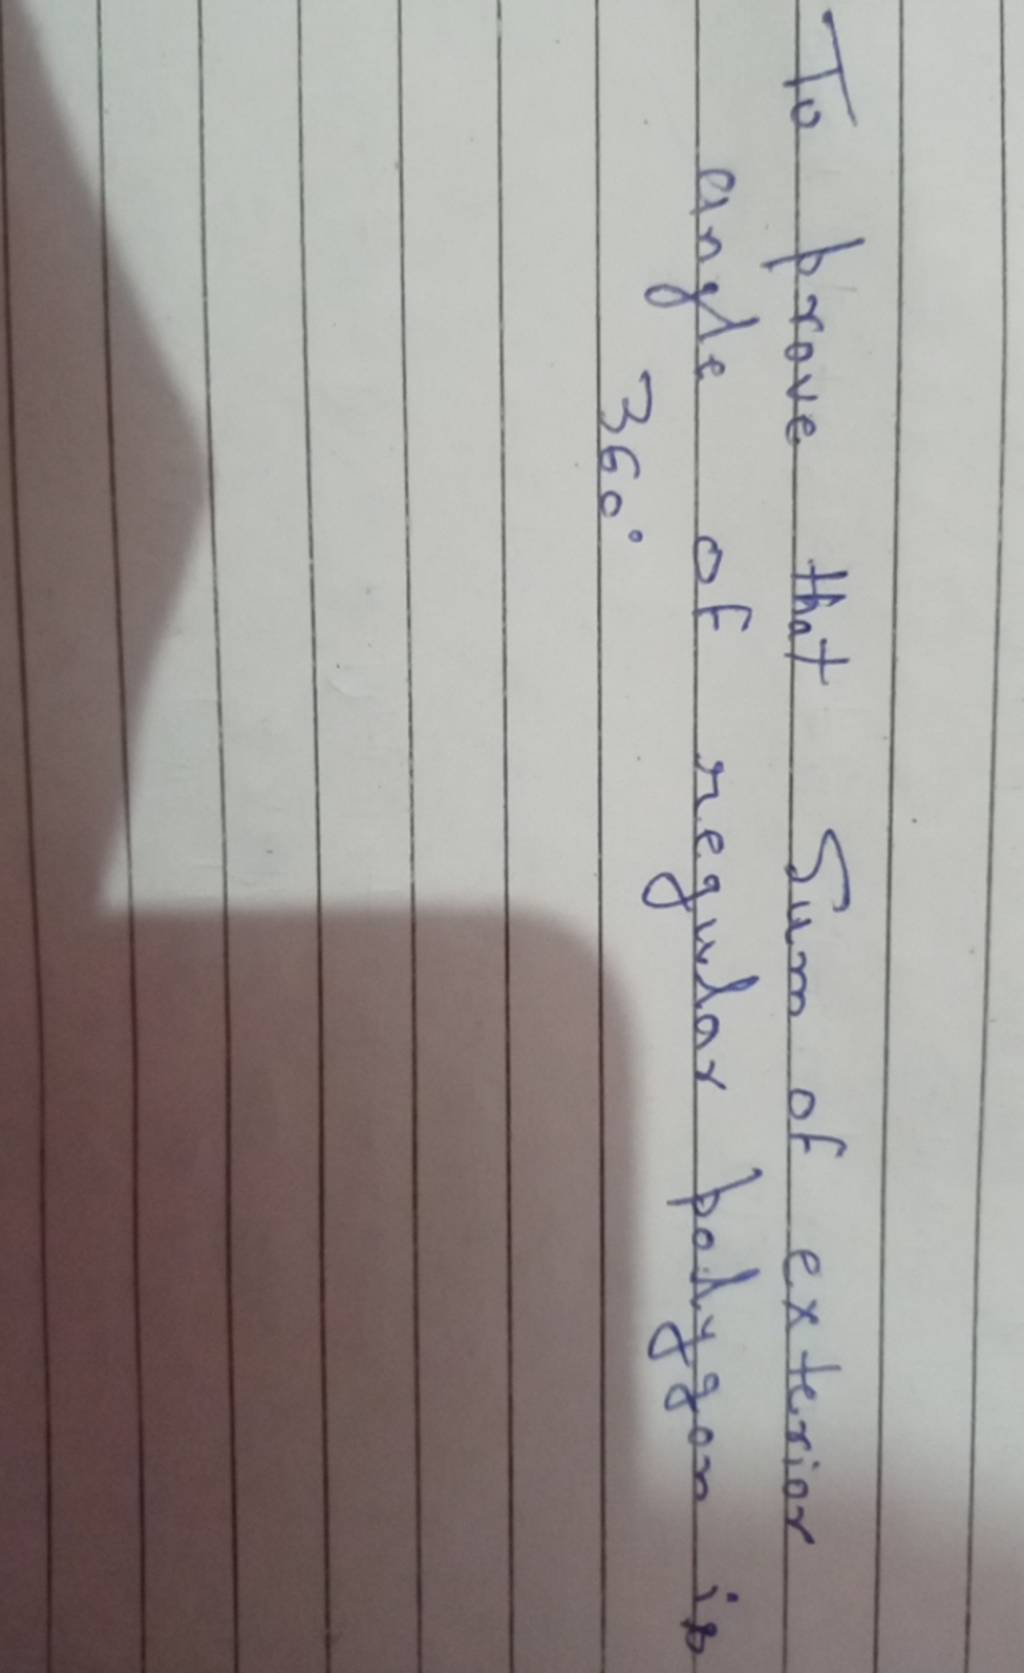 To prove that Sum of exterior
angle of regular polygon is
360°